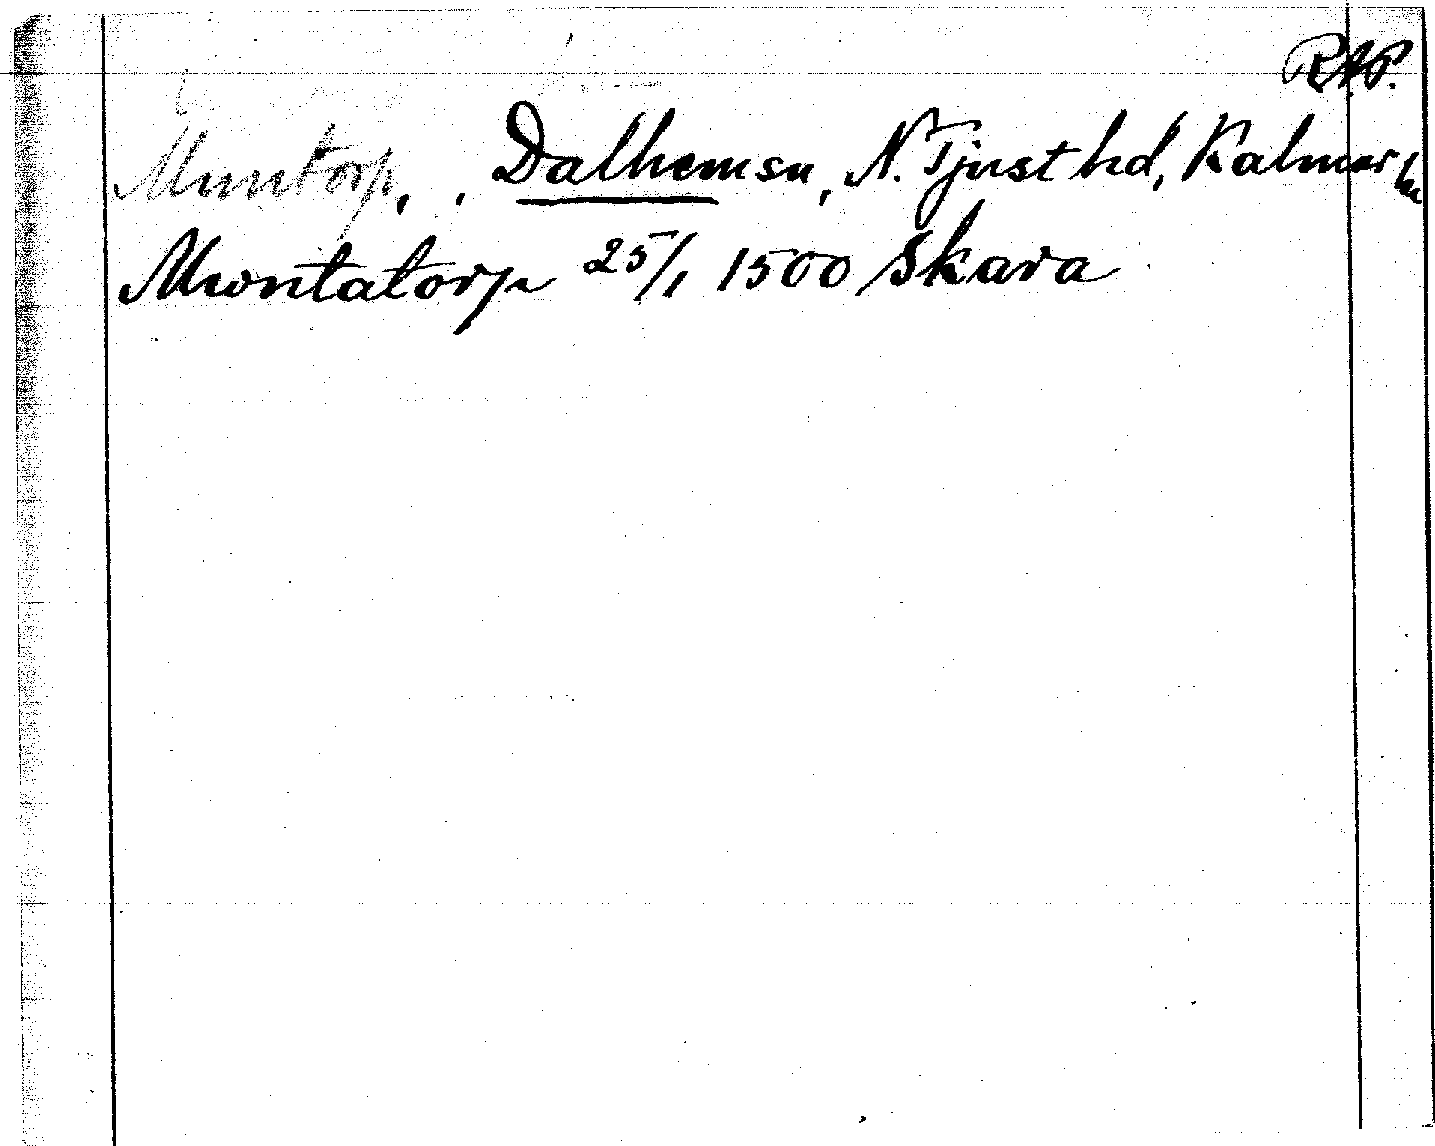 RAP.
Muntorp, , Dalhems sn, N. Tjust hd, Kalmar ln
Mwntatorp 25/1 1500 Skara